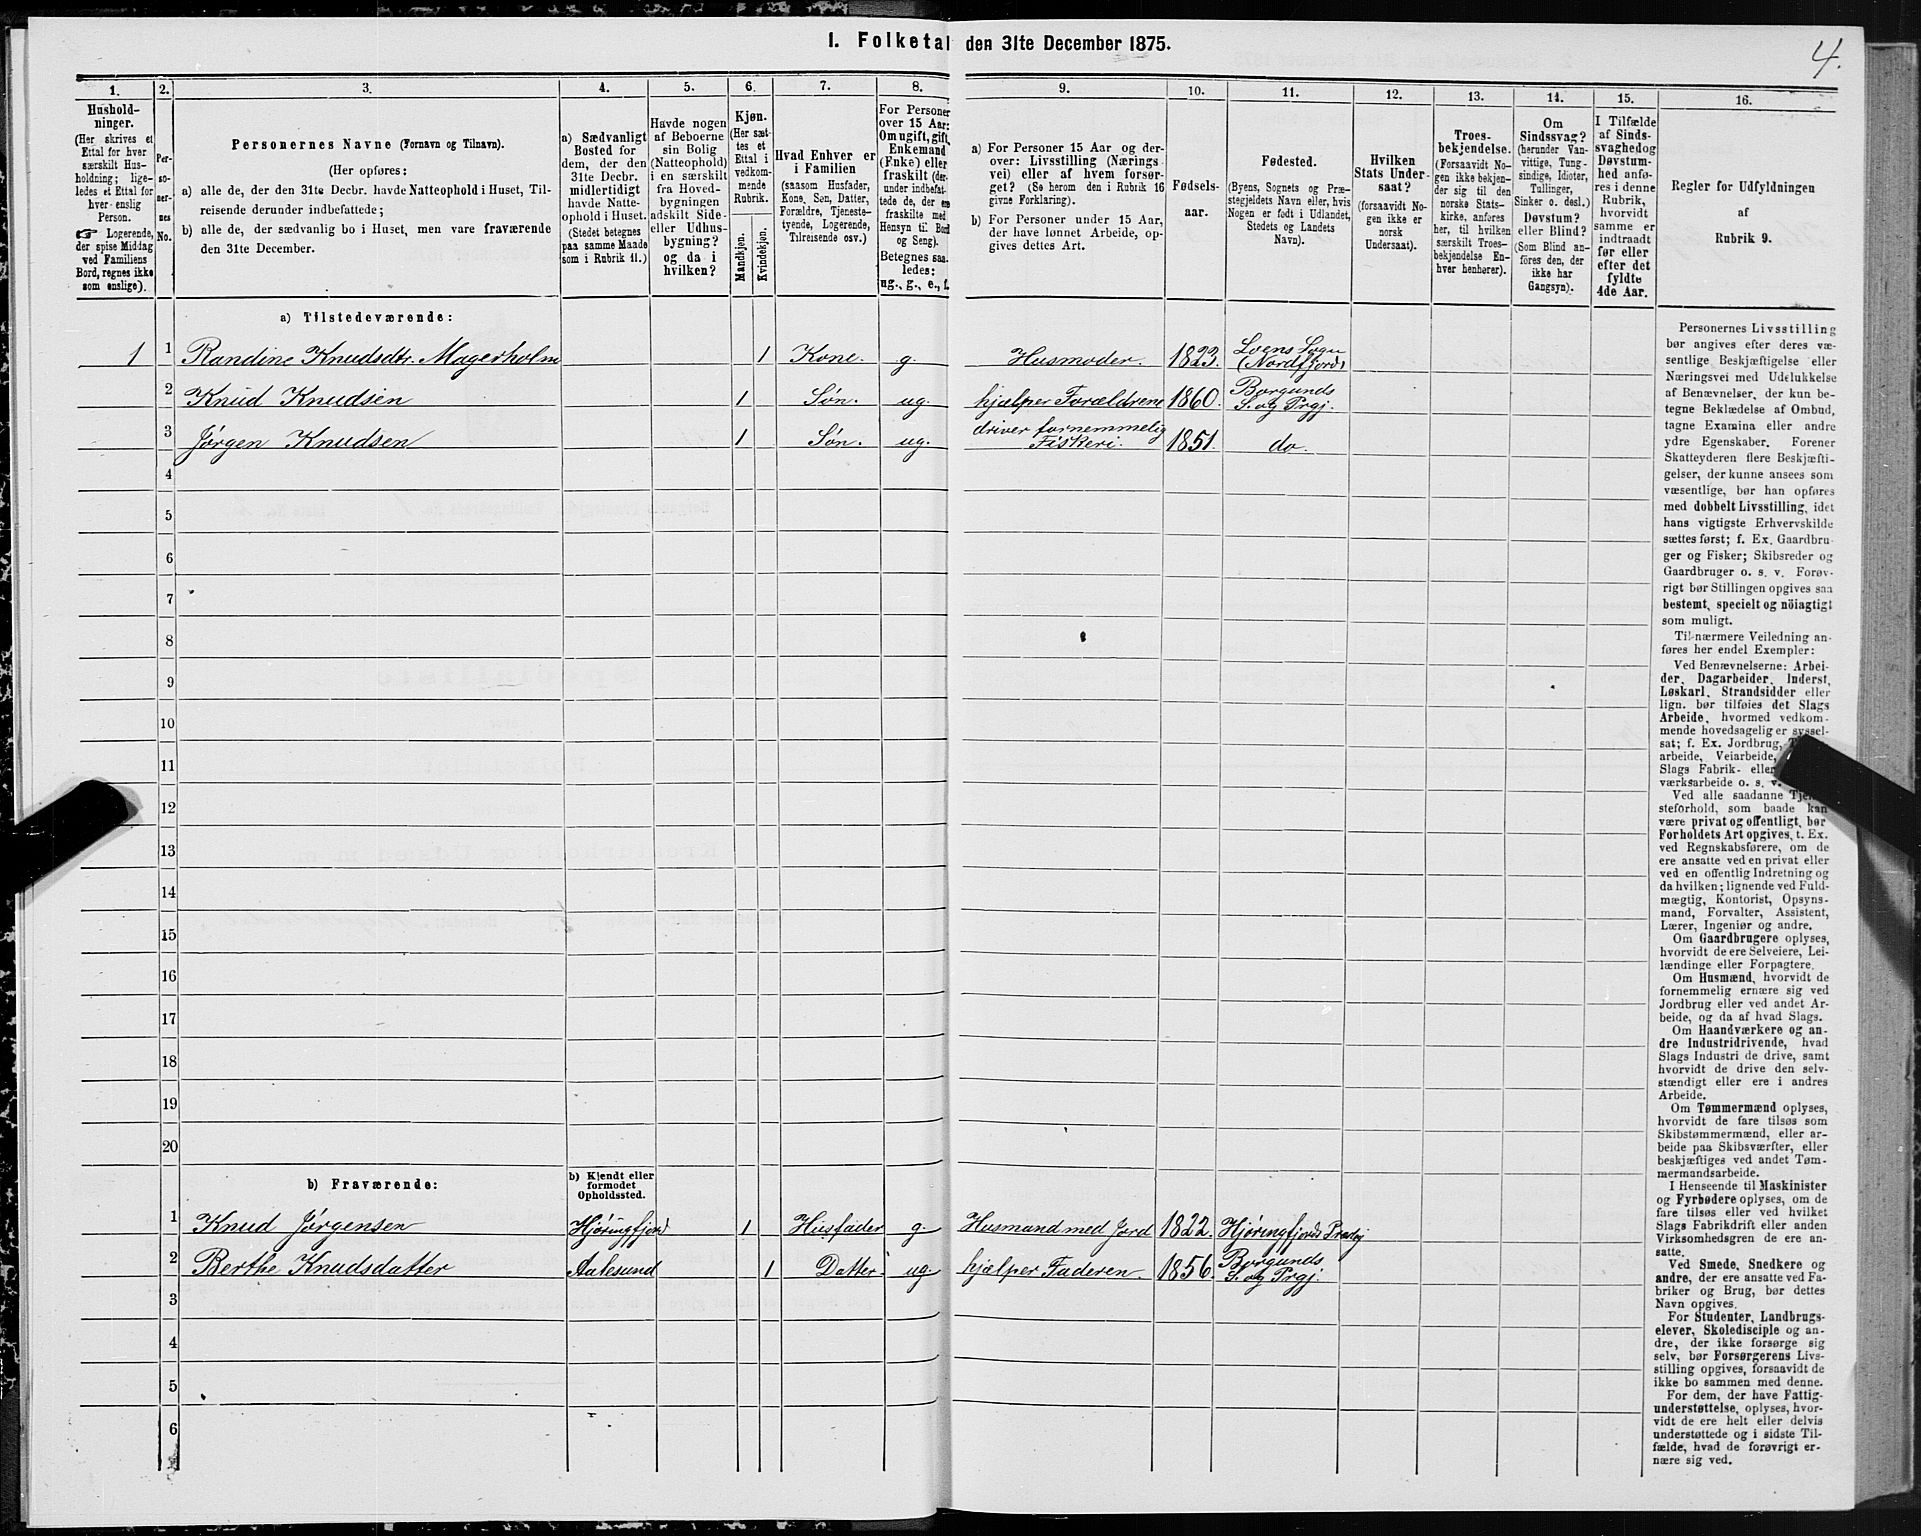 I. Folketal den 31te December 1875.
4.
1.
Hushold-
ninger.
(Her skrives et
Ettal for hver
særskilt Hus-
holdning; lige-
ledes et Ettal for
hver enslig
Person.
☞ Logerende,
der spise Middag
ved Familiens
Bord, regnes ikke
som enslige).
2.
Per-
so-
ner-
nes
No.
3.
Personernes Navne (Fornavn og Tilnavn).
(Her opføres:
a) alle de, der den 31te Decbr. havde Natteophold i Huset, Til-
reisende derunder indbefattede;
b) alle de, der sædvanlig bo i Huset, men vare fraværende
den 31te December.
4.
a) Sædvanligt
Bosted for
dem, der den
31te Decbr.
midlertidigt
havde Natte-
ophold i Huset.
(Stedet betegnes
paa samme Maade
som i Rubrik 11.)
5.
Havde nogen
af Beboerne
sin Bolig
(Natteophold)
i en særskilt
fra Hoved-
bygningen
adskilt Side-
eller Udhus-
bygning?
og da i
hvilken?
6.
Kjøn.
(Her sæt-
tes et
Ettal i
vedkom-
mende
Rubrik.
Mandkjøn.
Kvindekjøn.
7.
Hvad Enhver er
i Familien
(saasom Husfader,
Kone, Søn, Datter,
Forældre, Tjeneste-
tyende, Logerende,
Tilreisende osv.)
8.
For Personer
over 15 Aar:
Om ugift, gift,
Enkemand
(Enke) eller
fraskilt (der-
under indbefat-
tede de, der ere
fraskilte med
Hensyn til Bord
og Seng).
Betegnes saa-
ledes:
ug., g., e., f.
9.
a) For Personer 15 Aar og der-
over: Livsstilling (Nærings
vei) eller af hvem forsør-
get? (Se herom den i Rubrik 16
givne Forklaring).
b) For Personer under 15 Aar,
der have lønnet Arbeide, op-
gives dettes Art.
10.
Fødsels-
aar.
11.
Fødested.
(Byens, Sognets og Præ-
stegjeldets Navn eller, hvis
Nogen er født i Udlandet,
Stedets og Landets
Navn).
12.
Hvilken
Stats Under-
saat?
(forsaavidt No-
gen ikke er
norsk
Undersaat).
13.
Troes-
bekjendelse.
(Forsaavidt No-
gen ikke bekjen-
der sig til den
norske Stats-
kirke, anføres
her, til hvilken
særskilt Troes-
bekjendelse En-
hver henhører).
14.
Om
Sindssvag?
(herunder Van-
vittige, Tung-
sindige, Idioter,
Tullinger,
Sinker o. desl.)
Døvstum?
eller Blind?
(Som Blind an-
føres den, der
ikke har
Gangsyn).
15.
I Tilfælde
af Sinds-
svaghed og
Døvstum-
hed anfø-
res i denne
Rubrik,
hvorvidt
samme er
indtraadt
før eller
efter det
fyldte
4de Aar.
16.
Regler for Udfyldningen
af
Rubrik 9.
a) Tilstedeværende:
1 1 Randine Knudsdtr. Magerholm 1 Kone. g. Husmoder. 1823. Loens Sogn (Nordfjord)
2 Knud Knudsen 1 Søn. ug. hjælper Forældrene 1860. Borgunds S. og Prgj.
3 Jørgen Knudsen 1 Søn. ug. driver fornemmelig Fiskeri. 1851. do.
4
5
6
7
8
9
10
11
12
13
14
15
16
17
18
19
20
b) Fraværende:
b) Kjendt eller
formodet
Opholdssted.
1 Knud Jørgensen Hjørungfjord 1 Husfader g. Husmand med Jord 1822. Hjøringfjords Præstgj
2 Berthe Knudsdatter Aalesund 1 Datter. ug. hjælper Faderen. 1856. Borgunds S. og Prgj.
3
4
5
6
Personernes Livsstilling
bør angives efter deres væ-
sentlige Beskjæftigelse eller
Næringsvei med Udelukkelse
af Benævnelser, der kun be-
tegne Beklædelse af Ombud,
tagne Examina eller andre
ydre Egenskaber. Forener
Skatteyderen flere Beskjæfti-
gelser, der kunne ansees som
væsentlige, bør han opføres
med dobbelt Livsstilling, idet
hans vigtigste Erhvervskilde
sættes først; f. Ex. Gaardbru-
ger og Fisker; Skibsreder og
Gaardbruger o. s. v. Forøv-
rigt bør Stillingen opgives saa
bestemt, specielt og nöiagtigt
som muligt.
Til nærmere Veiledning an-
føres her endel Exempler:
Ved Benævnelserne: Arbei-
der, Dagarbeider, Inderst,
Løskarl, Strandsidder eller
lign. bør tilføies det Slags
Arbeide, hvormed vedkom-
mende hovedsagelig er syssel-
sat; f. Ex. Jordbrug,
arbeide, Veiarbeide,
Slags Fabrik- eller
værksarbeide o. s. v.
Ved alle saadanne Tjene-
steforhold, som baade kan
være privat og offentligt, bør
Forholdets Art opgives, t. Ex.
ved Regnskabsførere, om de
ere ansatte ved en privat eller
ved en offentlig Indretning og
da hvilken; lignende ved Fuld-
mægtig, Kontorist, Opsyns-
mand, Forvalter, Assistent,
Lærer, Ingeniør og andre.
Om Gaardbrugere oplyses,
hvorvidt de ere Selveiere, Lei-
lændinge eller Forpagtere.
Om Husmænd, hvorvidt de
fornemmelig ernære sig ved
Jordbrug eller ved andet Ar-
beide, og da af hvad Slags.
Om Haandværkere og an-
dre Industridrivende, hvad
Slags Industri de drive, samt
hvorvidt de drive den selv-
stændigt eller ere i andres
Arbeide.
Om Tømmermænd oplyses,
hvorvidt de fare tilsøs som
Skibstømmermænd, eller ar-
beide paa Skibsværfter, eller
beskjæftiges ved andet Tøm-
mermandsarbeide.
I Henseende til Maskinister
og Fyrbødere oplyses, om de
fare tilsøs eller ved hvilket
Slags Fabrikdrift eller anden
Virksomhedsgren de ere an-
satte.
Ved Smede, Snedkere og
andre, der ere ansatte ved Fa-
briker og Brug, bør dettes
Navn opgives.
For Studenter, Landbrugs-
elever, Skoledisciple og an-
dre, der ikke forsørge sig
selv, bør Forsørgerens Livs-
stilling opgives, forsaavidt de
ikke bo sammen med denne.
For dem, der have Fattig-
understøttelse, oplyses, hvor-
vidt de ere helt eller delvis
understøttede og i sidste Til-
fælde, hvad de forøvrigt er-
nære sig ved.